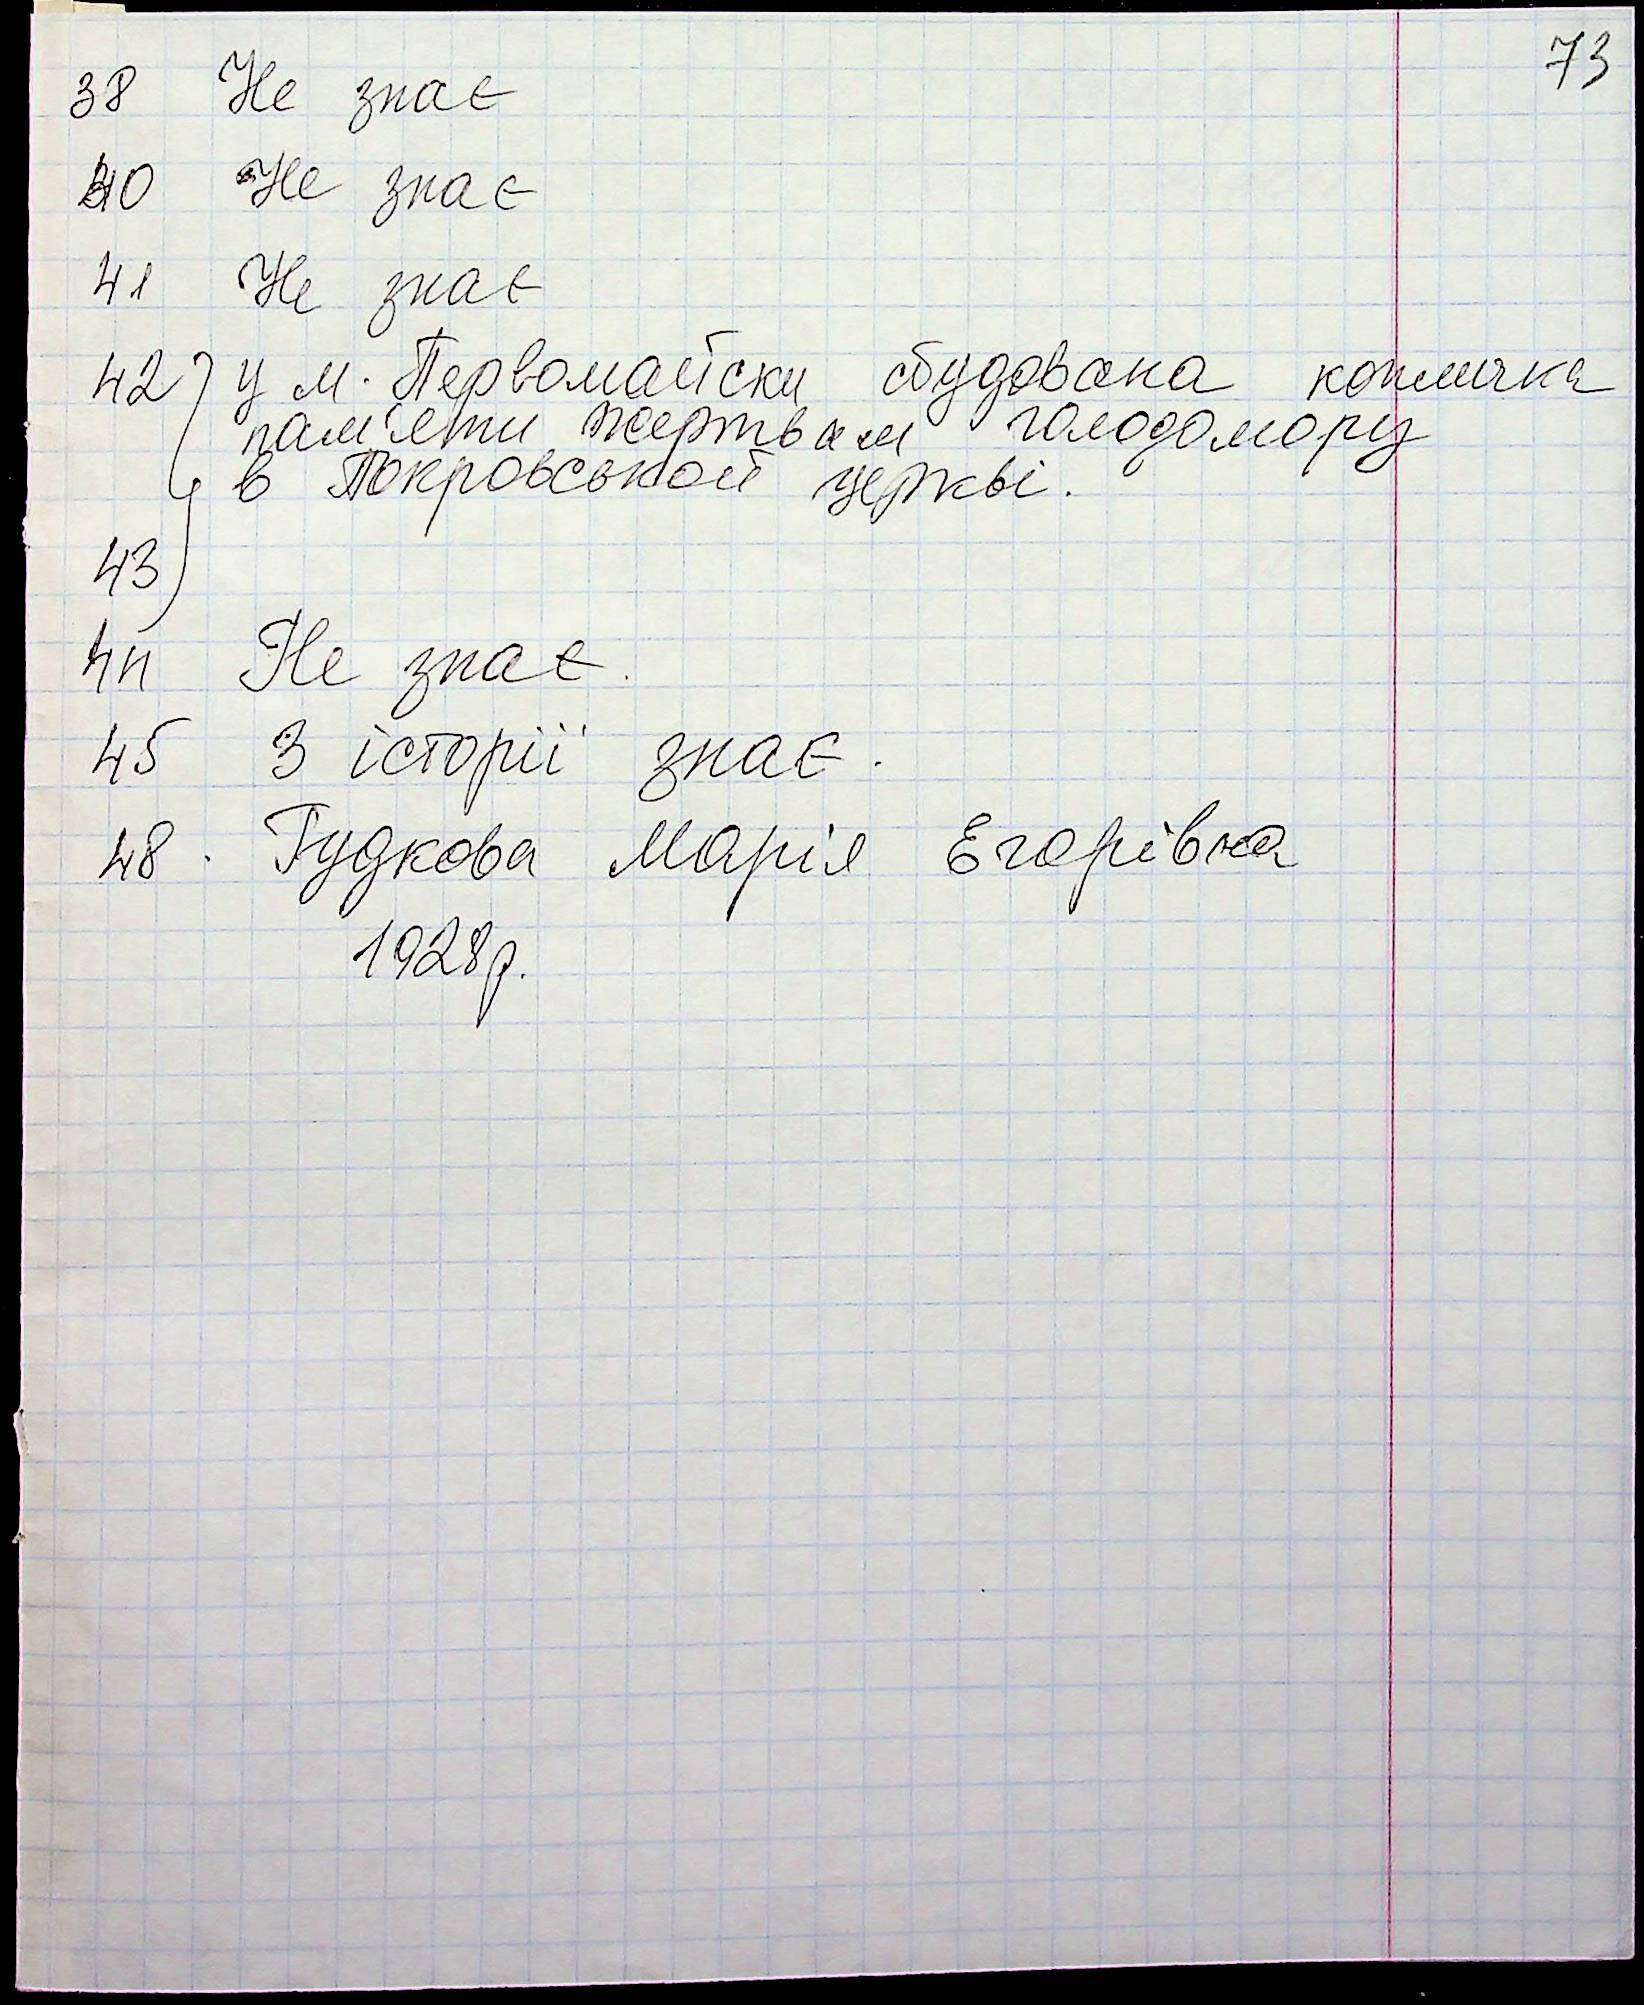 73
38 Не знає
40 Не знає
41 Не знає
42 у м. Первомайски сбудована копличка
пам'яти жертвам голодомору
в Покровськой церкві.
43
44 Не знає.
45 З історії знає.
48. Гудкова Марія Егорівна
1928р.